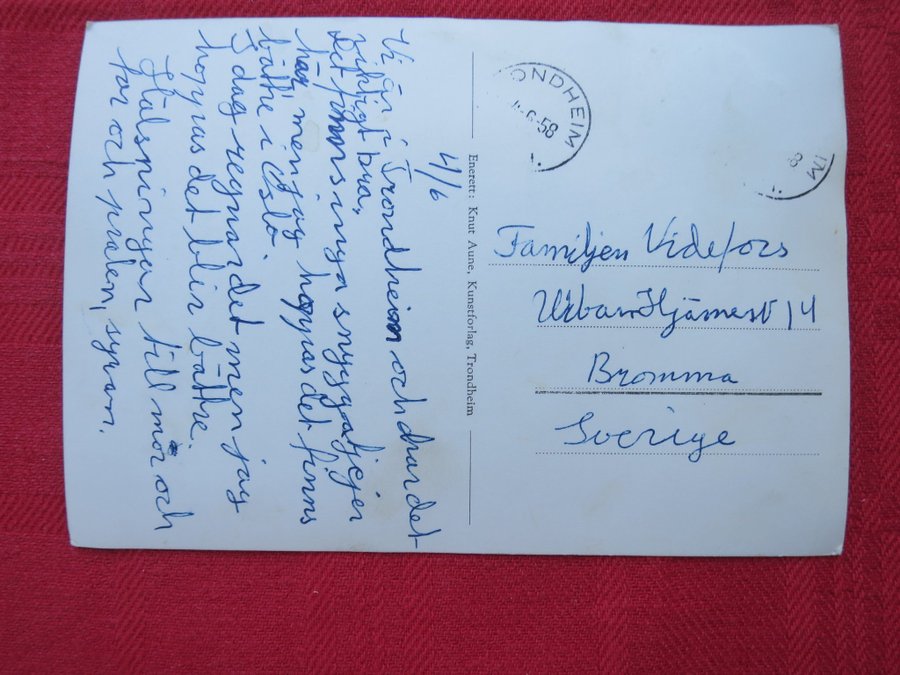 4/6
Vi är i Trondheim och har det
riktigt bra,
det finns inga snygga tjejer
här, men jag hoppas det finns
bättre i Oslo.
I dag regnar det men jag
hoppas det blir bättre.
Hälsningar till mor och
far och
Enerett: Knut Aune, Kunstforlag, Trondheim
ONDHEIM
-6-58
IM
8
Familjen Videfors
Urban Hjärnesv 14
Bromma
Sverige